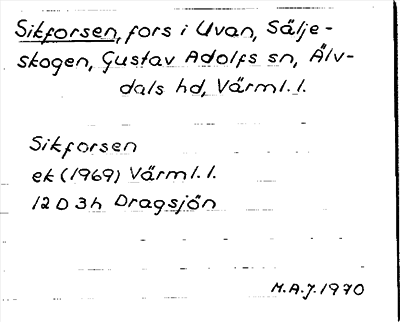 Sikforsen, fors i Uvan, Sälje-
skogen, Gustav Adolfs sn, Älv-
dals hd, Värml. l.
Sikforsen
ek (1969) Värml. l.
12 D 3h Dragsjön
M.A.J. 1970